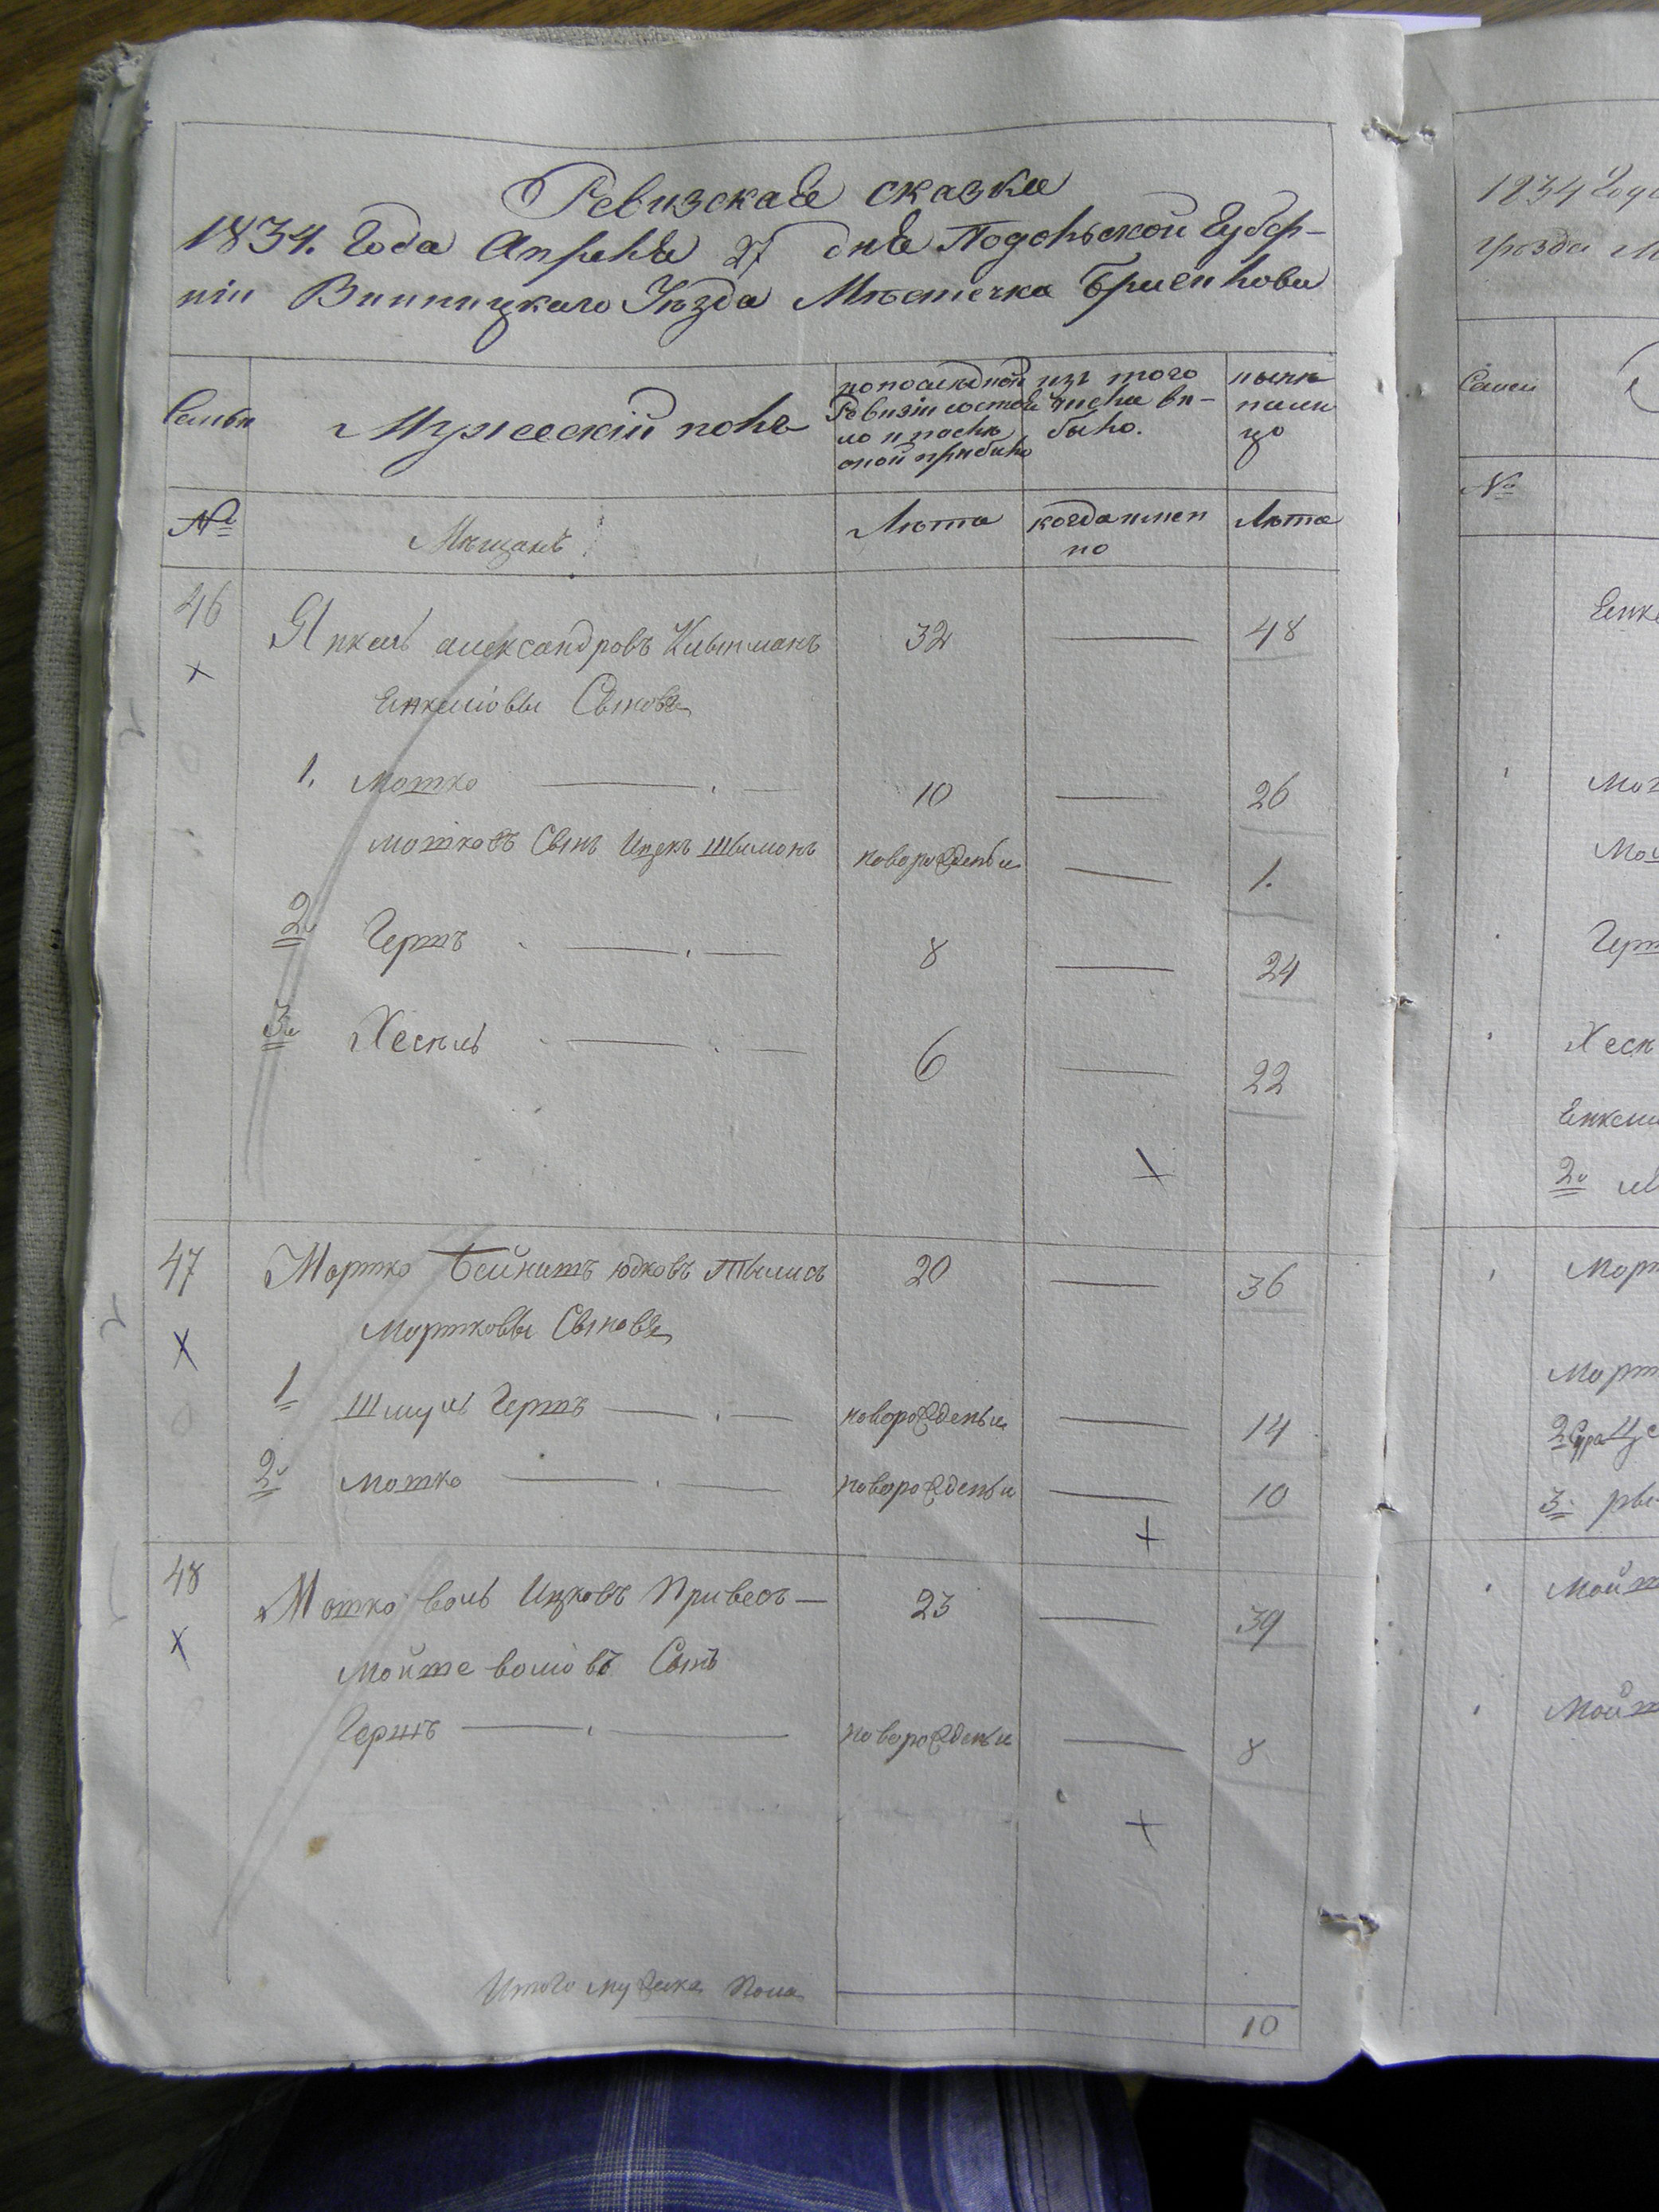 Ревизская сказка
1834. Года Апреля 27 дня Подольской Губер-
ніи Винницкаго Уѣзда Мѣстечка Браилова
Семьи
Мужескій полъ
по последной
Ревизіи состоя
ло и послѣ
оной прибыло
изъ того
числа вы-
было.
нынѣ
нали
цо
№
Мѣщанъ
Лѣта
когда имен
но
Лѣта
46
Янкель александровъ Клыгманъ
32
48
Енкелiовы Сыновя
1. Мотко
10
26
мотковъ Сынъ Ицекъ Шлимонъ
новорожденый
1.
2й
Гершъ
8
24
3й
Хескиль
6
22
47
Мортко Бейнишъ юдковъ
20
36
Мортковы Сыновя
1
Шмуль Гершъ
новорожденый
14
2й
мотко
новорожденый
10
48
Мотко воль Ицковъ Привесъ
23
39
Мойше волiовъ Сынъ
Гершъ
новорожденый
8
Итого мужска Пола
10
1834 Года
уѣзда М
Семьи
№
Енке
Мот
Герш
Хеск
Енкели
2й
Морт
Морт
3.
Мойш
Мойш